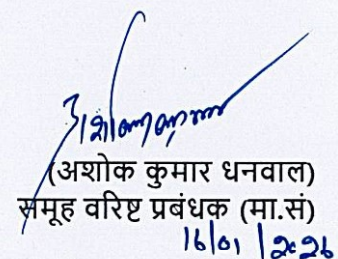 (अशोक कुमार धनवाल)
समूह वरिष्ट प्रबंधक (मा.सं)
16/01/2026